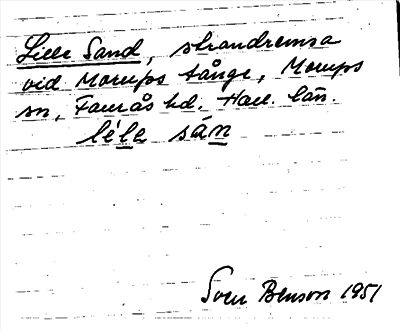 Lille Sand, strandremsa
vid Morups tånge, Morups
sn, Faurås hd. Hall. län.
léle sán
Sven Benson 1951